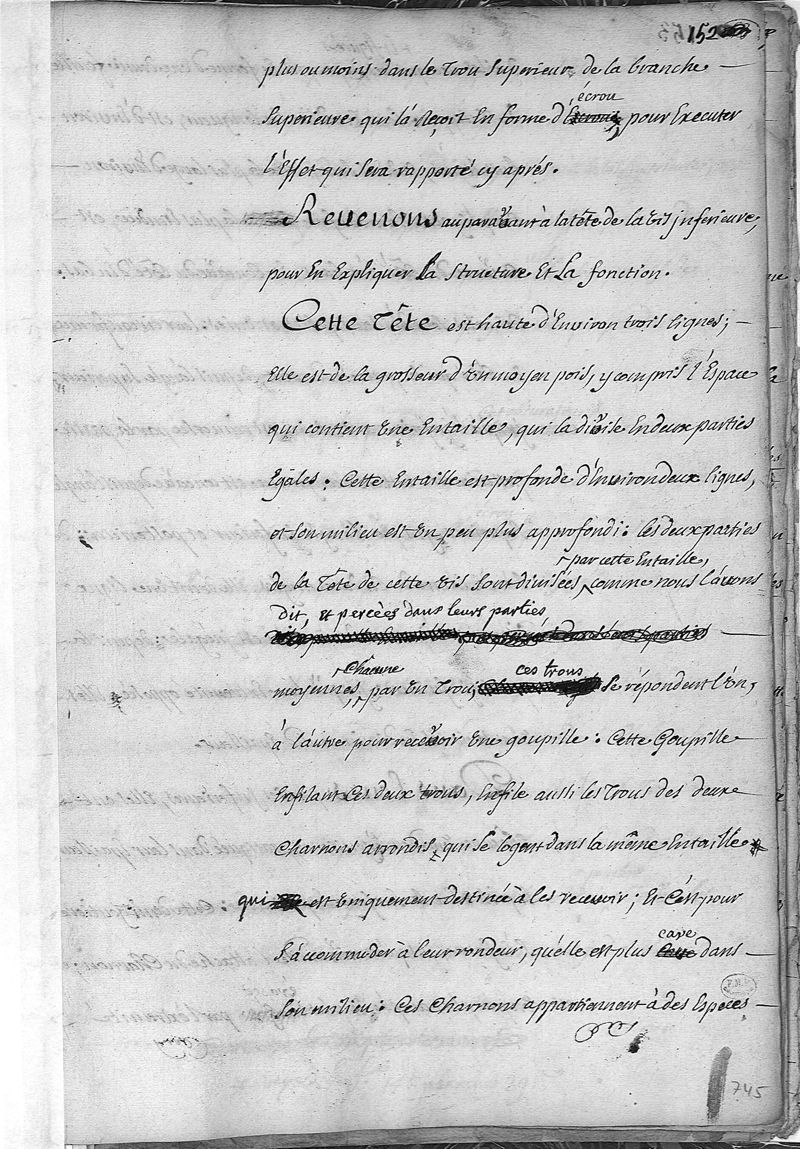 152
plus ou moins dans le Trou Superieur de la branche
Superieure qui la Reçoit En forme d'écrou, pour Executer
l'Effet qui sera rapporté cy aprés.
Revenons auparavant à la tête de la vis inferieure,
pour En Expliquer La Structure Et La fonction.
Cette Tête est haute d'Environ trois lignes;
Elle est de la grosseur d'Un moyen pois, y compris l'Espace
qui contient Une Entaille, qui la divise En deux parties
Egales. Cette Entaille est profonde d'Environ deux lignes,
et son milieu est Un peu plus approfondi: les deux parties
par cette Entaille,
de la Tête de cette vis sont divisées, comme nous l'avons
dit, et percées dans leurs parties
chacune ces trous
moyennes, par Un Trou, Se répondent l'Un,
à l'autre pour recevoir Une goupille: Cette Goupille
Enfilant Ces deux trous, Enfile aussi les Trous des deux
Charnons arrondis, qui se logent dans la même Entaille
qui est Uniquement destinée à les recevoir; Et C'est pour
S'accommoder à leur rondeur, qu'elle est plus cave dans
Son milieu: Ces Charnons appartiennent à des Especes
745